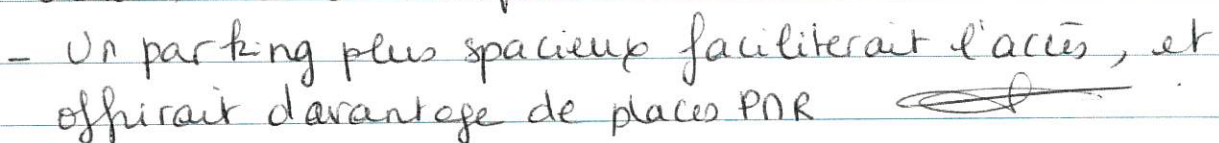 - Un parking plus spacieux faciliterait l'accès, et
offrirait davantage de places PMR